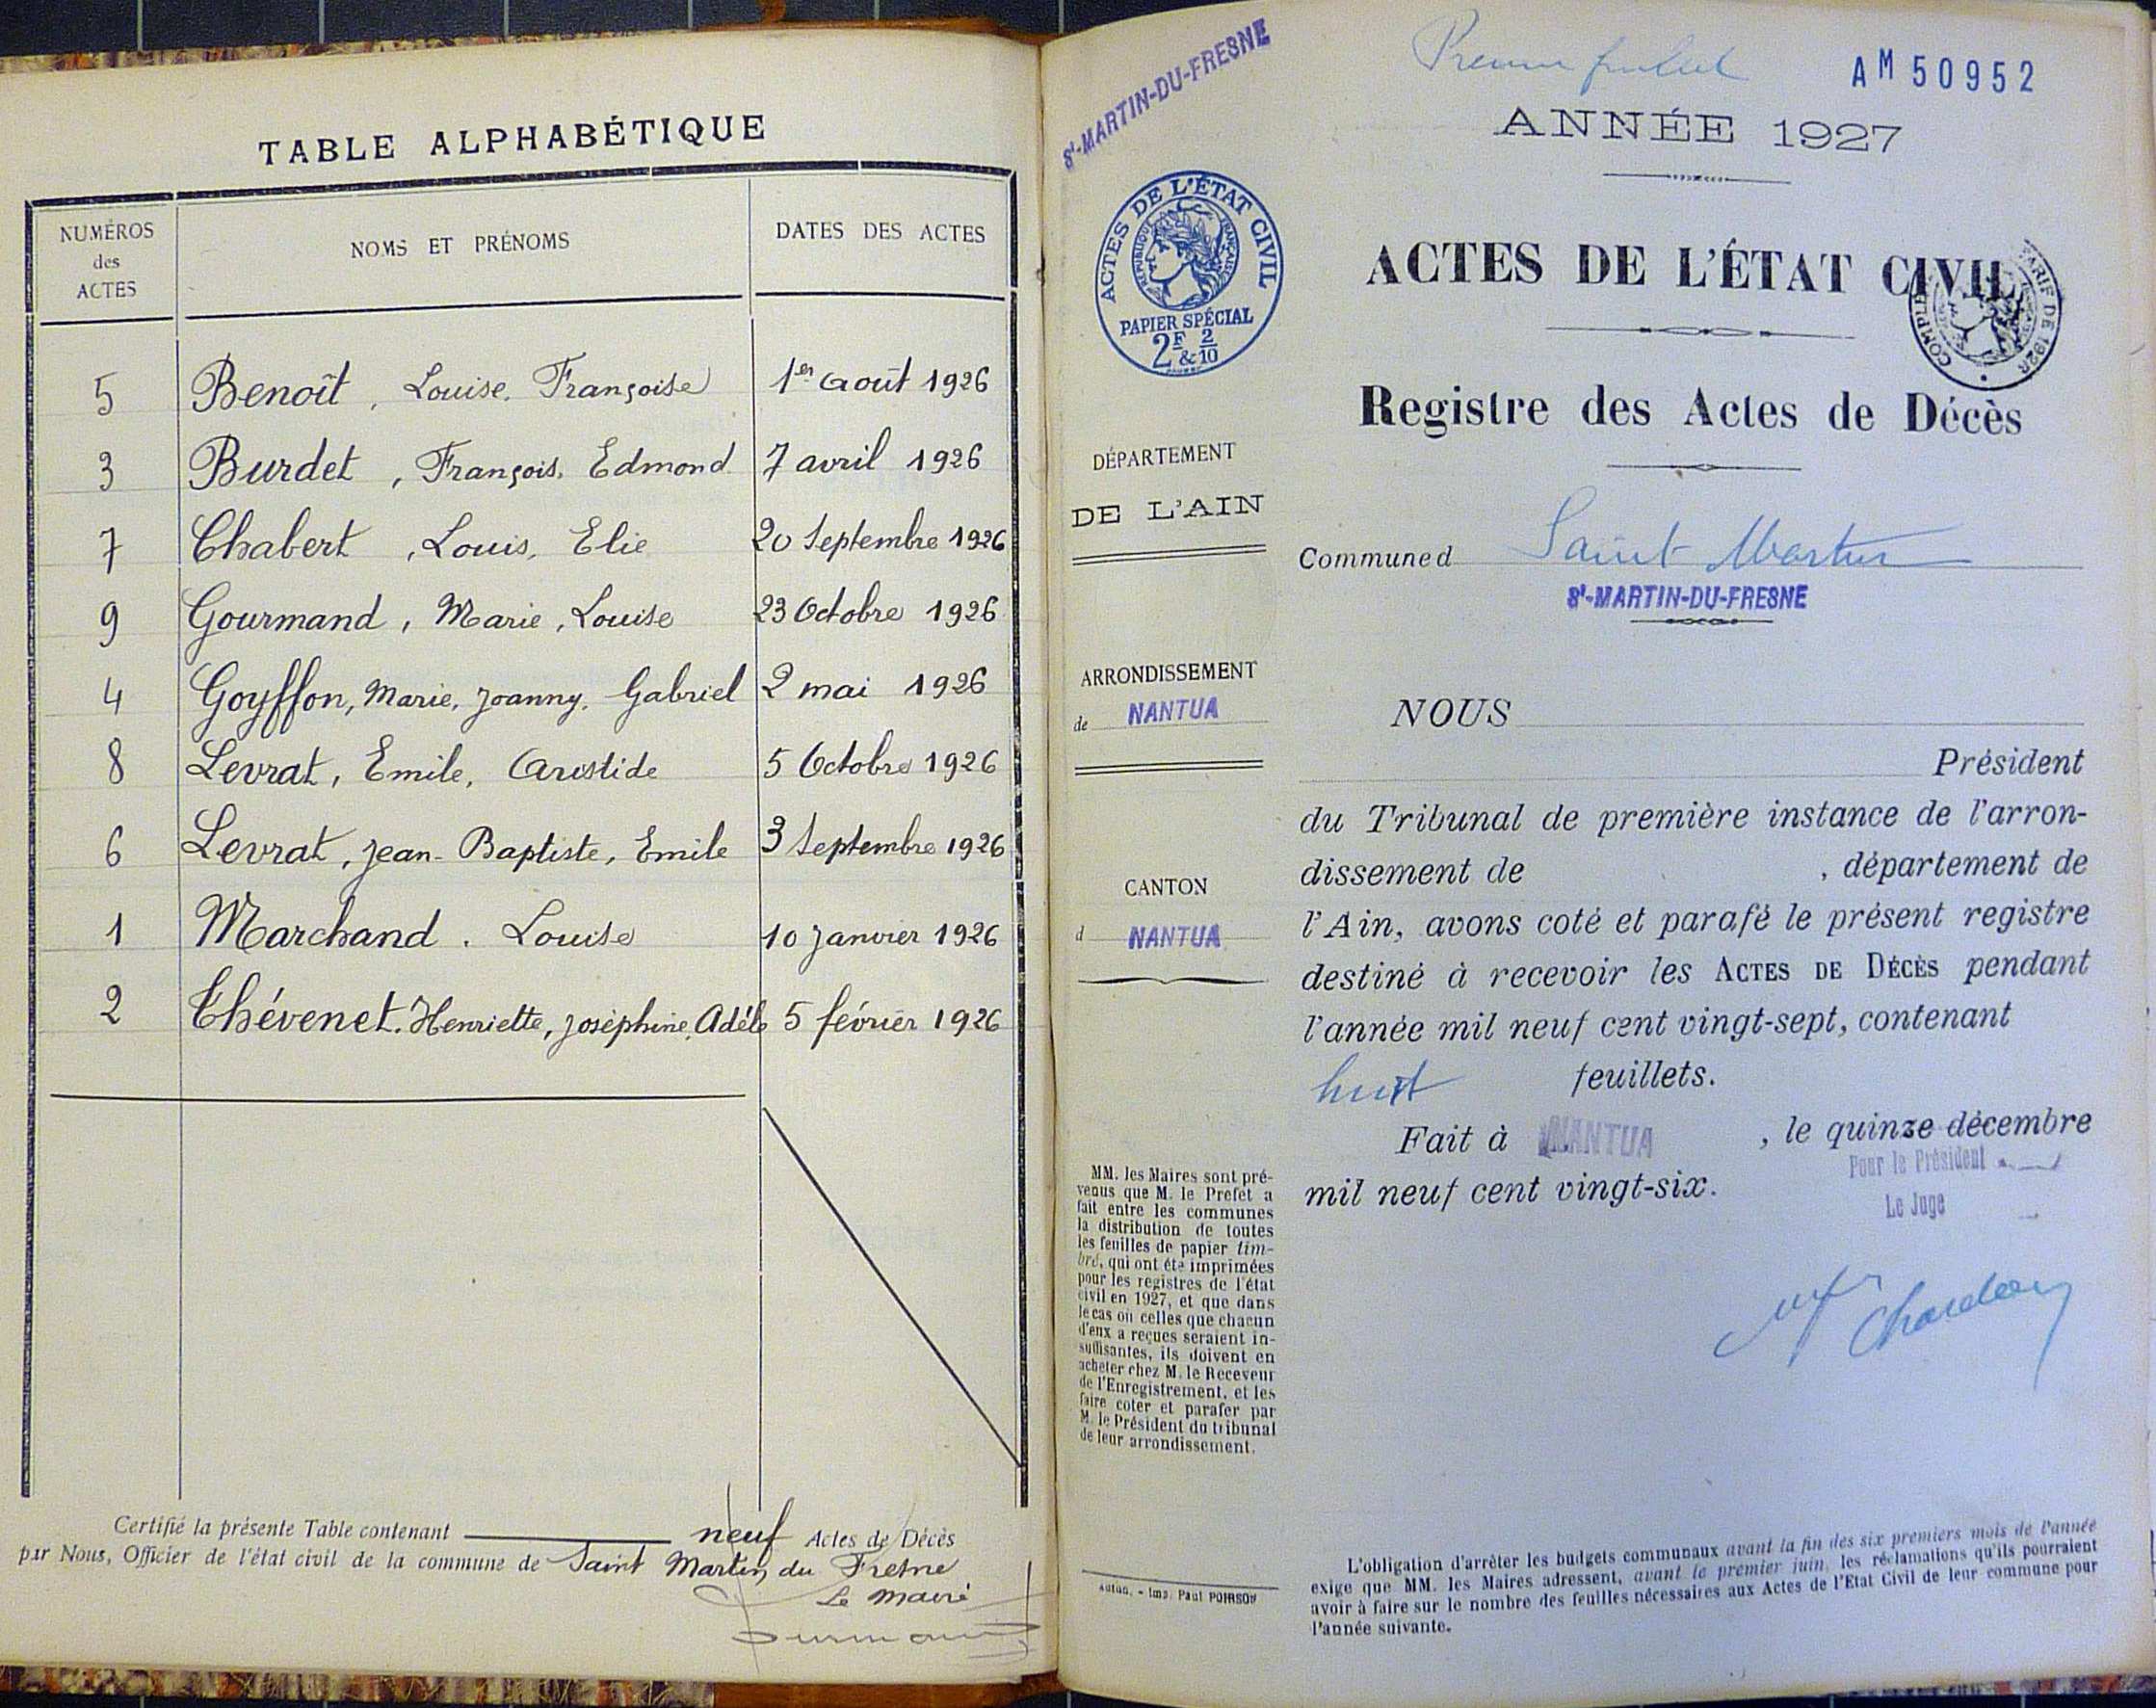 TABLE ALPHABÉTIQUE
NUMÉROS des ACTES
NOMS ET PRÉNOMS
DATES DES ACTES
5 Benoît, Louise, Françoise 1er Août 1926
3 Burdet, François, Edmond 7 avril 1926
7 Chabert, Louis, Elie 20 Septembre 1926
9 Gourmand, Marie, Louise 23 Octobre 1926
4 Goyffon, Marie, Joanny, Gabriel 2 mai 1926
8 Levrat, Emile, Aristide 5 Octobre 1926
6 Levrat, Jean-Baptiste, Emile 3 Septembre 1926
1 Marchand. Louise 10 Janvier 1926
2 Thévenet. Henriette, Joséphine, Adèle 5 février 1926
Certifié la présente Table contenant neuf Actes de Décès
par Nous, Officier de l'état civil de la commune de Saint Martin du Fresne
Le Maire
St-MARTIN-DU-FRESNE
ACTES DE L'ÉTAT CIVIL
RÉPUBLIQUE FRANÇAISE
PAPIER SPÉCIAL
2F & 2/10
DÉPARTEMENT
DE L'AIN
ARRONDISSEMENT
de NANTUA
CANTON
d NANTUA
MM. les Maires sont pré-
venus que M. le Prefet a
fait entre les communes
la distribution de toutes
les feuilles de papier tim-
bré, qui ont été imprimées
pour les registres de l'état
civil en 1927, et que dans
le cas où celles que chacun
d'eux a reçues seraient in-
suffisantes, ils doivent en
acheter chez M. le Receveur
de l'Enregistrement, et les
faire coter et parafer par
M. le Président du tribunal
de leur arrondissement.
Autun. - Imp. Paul POIRSON
Premier feuillet
AM 50952
ANNÉE 1927
ACTES DE L'ÉTAT CIVIL
TARIF DE 192
Registre des Actes de Décès
Commune d Saint Martin
St-MARTIN-DU-FRESNE
NOUS
Président
du Tribunal de première instance de l'arron-
dissement de , département de
l'Ain, avons coté et parafé le présent registre
destiné à recevoir les ACTES DE DÉCÈS pendant
l'année mil neuf cent vingt-sept, contenant
huit feuillets.
Fait à NANTUA , le quinze décembre
mil neuf cent vingt-six.
Pour le Président
Le Juge
L'obligation d'arrêter les budgets communaux avant la fin des six premiers mois de l'année
exige que MM. les Maires adressent, avant le premier juin, les réclamations qu'ils pourraient
avoir à faire sur le nombre des feuilles nécessaires aux Actes de l'Etat Civil de leur commune pour
l'année suivante.